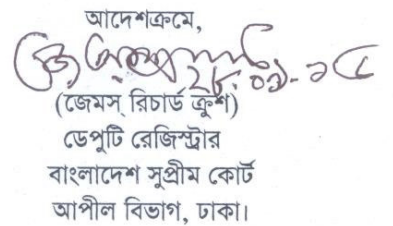 আদেশক্রমে,
২৮.০৯.১৫
(জেমস্ রিচার্ড ক্রুশ)
ডেপুটি রেজিস্ট্রার
বাংলাদেশ সুপ্রীম কোর্ট
আপীল বিভাগ, ঢাকা।